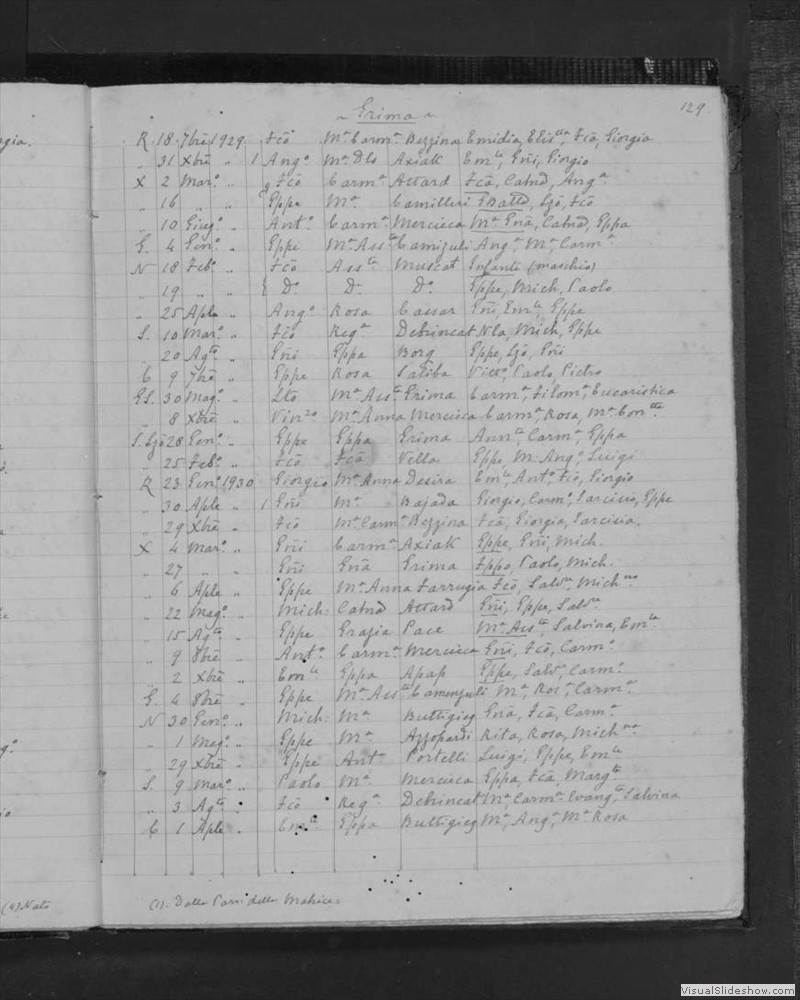 129.
~ Grima ~
R 18 7bre 1929 Fcō Mª Carmª Bezzina Emidia, Elisᵗᵗᵃ, Fcā, Giorgia
„ 31 Xbre „ 1 Angº Mª Dls Axiak Emˡᵃ, Gñi, Giorgio
X 2 Marº „ Fcō Carmª Attard Fcā, Catnd, Angª
„ 16 „ „ Gppe Mª Camilleri GBattā, Ljō, Fcō
„ 10 Giugº „ Antº Carmª Mercieca Mª Gñā, Catnd, Gppa
G. 4 Genº „ Gppe Mª Assᵗᵃ Camizuli Angª Mª, Carmª
N 18 Febº „ Fcō Assᵗᵃ Muscat Infante (maschio)
„ 19 „ „ Dº D. Dº Gppe, Mich, Paolo
„ 25 Aple „ Angº Rosa Caesar Gñi, Emˡᵃ, Gppe
S. 10 Marº „ Fcō Regª Debrincat Nla, Mich, Gppe
„ 20 Agᵗᵒ „ Gñi Gppa Borg Gppe, Ljō, Gñi
C 9 7bre „ Gppe Rosa Saliba Vittº, Paolo, Pietro
GS. 30 Magº „ Mª Assᵗᵃ Grima Carmª, Filomª, Eucaristica
„ 8 Xbre „ Vinzº Mª Anna Mercieca Carmª, Rosa, Mª Conᵗᵗᵃ
S. Ljō 28 Genº „ Gppe Gppa Grima Annᵗᵃ Carmª, Gppa
„ 25 Febº „ Fcō Fcā Vella Gppe, M. Angº, Luigi
R 23 Genº 1930 Giorgio Mª Anna Desira Emˡᵃ, Antº, Fcō, Giorgio
„ 30 Aple „ 1 Gñi Mª Bajada Giorgio, Carmº, Tarcisio, Gppe
„ 29 Xbre „ Fcō Mª Carmª Bezzina Fcā, Giorgia, Tarcisia.
X 4 Marº „ Gñi Carmª Axiak Gppe, Gñi, Mich.
„ 27 „ „ Gñi Gñā Grima Fppo, Paolo, Mich.
„ 6 Aple „ Gppe Mª Anna Farrugia Fcō, Salvʳᵉ, Michⁿᵒ
„ 22 Magº „ Mich Catnd Attard Gñi, Gppe, Salvʳᵉ
„ 15 Agᵗᵒ „ Gppe Grazia Pace Mª Assᵗᵃ, Salvina, Emˡᵃ
„ 9 8bre „ Antº Carmª Mercieca Gñi, Fcō, Carmº
„ 2 Xbre „ Emˡᵉ Gppa Apap Gppe, Salvʳᵉ, Carmº
G. 4 8bre „ Gppe Mª Assᵗᵃ Camenzuli Mª, Rosª, Carmª
N 30 Genº „ Mich. Mª Buttigieg Gñā, Fcā, Carmª
„ 1 Magº „ Gppe Mª Azzopardi Rita, Rosa, Michⁿᵃ
„ 29 Xbre „ Gppe Antª Portelli Luigi, Gppe, Emˡᵉ
S. 9 Marº „ Paolo Mª Mercieca Gppa, Fcā, Margᵗᵃ
„ 3 Agᵗᵒ „ Fcō Regª Debrincat Mª Carmª Evangᵗᵃ, Salvina
C 1 Aple „ Emˡᵉ Gppa Buttigieg Mª, Angª, Mª Rosa
(1). Dalla Parr. della Matrice
(a) Nato
VisualSlideshow.com